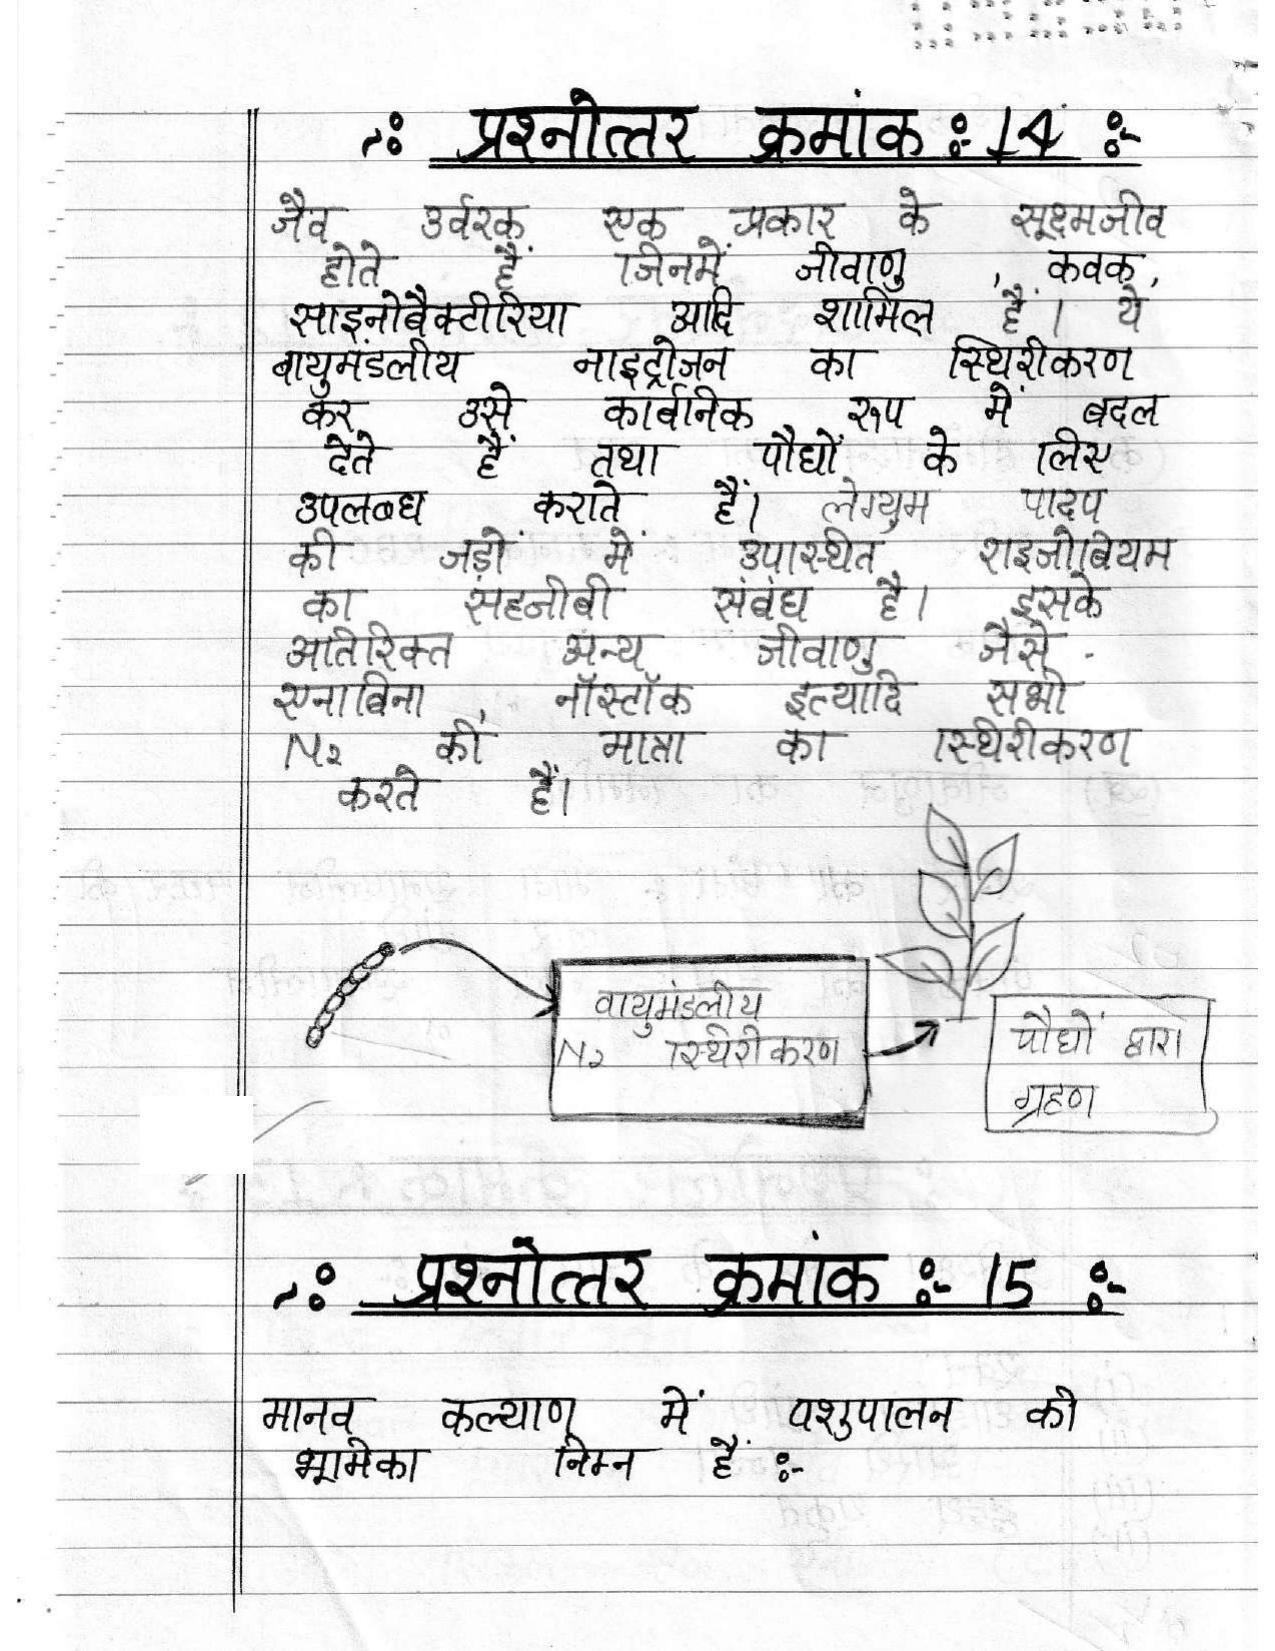 ~: प्रश्नोत्तर क्रमांक :- 14 :-
जैव उर्वरक एक प्रकार के सूक्ष्मजीव
होते हैं जिनमें जीवाणु , कवक,
साइनोबैक्टीरिया आदि शामिल हैं । ये
वायुमंडलीय नाइट्रोजन का स्थिरीकरण
कर उसे कार्बनिक रूप में बदल
देते हैं तथा पौधों के लिए
उपलब्ध कराते हैं। लेग्युम पादप
की जड़ों में उपास्थित राइजोबियम
का सहजीवी संबंध है। इसके
अतिरिक्त अन्य जीवाणु जैसे -
एनाबिना , नॉस्टॉक इत्यादि सभी
N₂ की मात्रा का स्थिरीकरण
करते हैं।
वायुमंडलीय
N₂ स्थिरीकरण
पौधों द्वारा
ग्रहण
~: प्रश्नोत्तर क्रमांक :- 15 :-
मानव कल्याण में पशुपालन की
भूमिका निम्न हैं :-